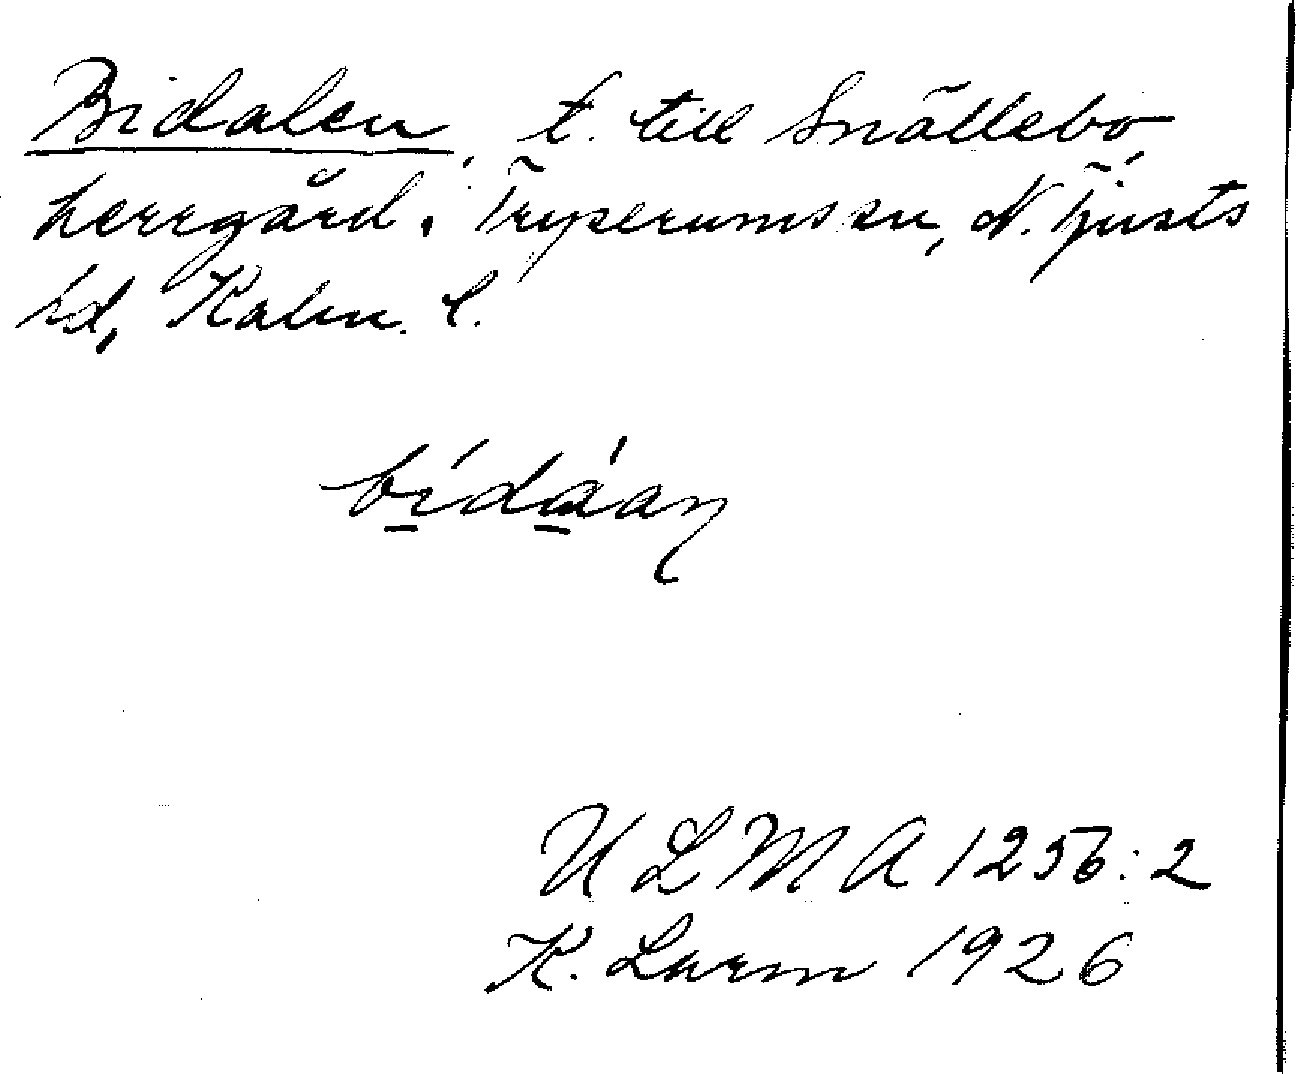 Bidalen, t. till Snällebo
herrgård. Tryserums sn, N. Tjusts
hd, Kalm. l.
bídáan
U L M A 1256:2
K. Larm 1926